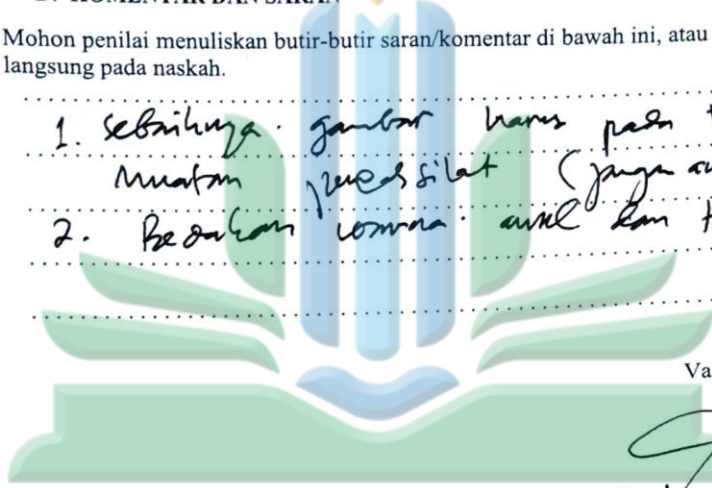 KOMENTAR DAN SARAN
Mohon penilai menuliskan butir-butir saran/komentar di bawah ini, atau
langsung pada naskah.
1. Sebaiknya gambar harus pada
Muatan pencak silat (jangan
2. Bedakan warna awal dan
Va